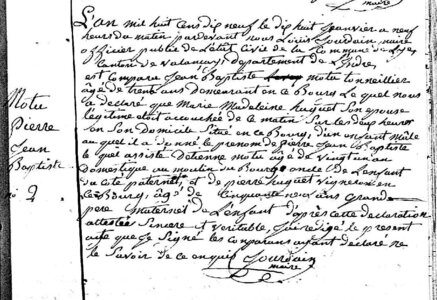 maire
L'an mil huit cens dix neuf le dix huit Janvier a neuf
heurs du matin pardevant nous Louis Jourdain maire
officier public de l'état civile de la Commune de
Canton de valançay département de Lindre
est comparu Jean Baptiste motu tonneillier
âgé de trente ans Domeurant en ce Bourg Le quel nous
a déclaré que Marie Madeleine huguet Son epouse
légitime est accouchée de ce matin Sur les deux heures
en Son domicile Situé en ce Bourg, d'un enfant Mâle
au quel il a donné le prenom de pierre Jean Baptiste
le quel assisté d'etienne motu âgé de vingt un an
Domestique au moulin du Bourg oncle de L'enfant
du côté paternel, et de pierre huguet vigneron en
ce Bourg, âgé de Cinquante ans grand
pere maternel de L'enfant d'après cette declaration
attestée Sincere et veritable, J'ai redigé le present
acte que J'ai Signé les comparans ayant declaré ne
le Savoir de ce enquis Jourdain
maire
Motu
Pierre
Jean
Baptiste
no. 2